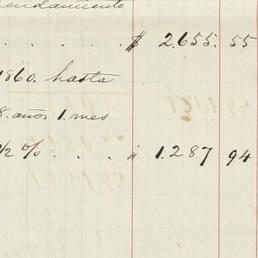 . . . . . $ 2.655. 55
1860. hasta
8. años 1. mes
1/2 % . . . " 1.287 94